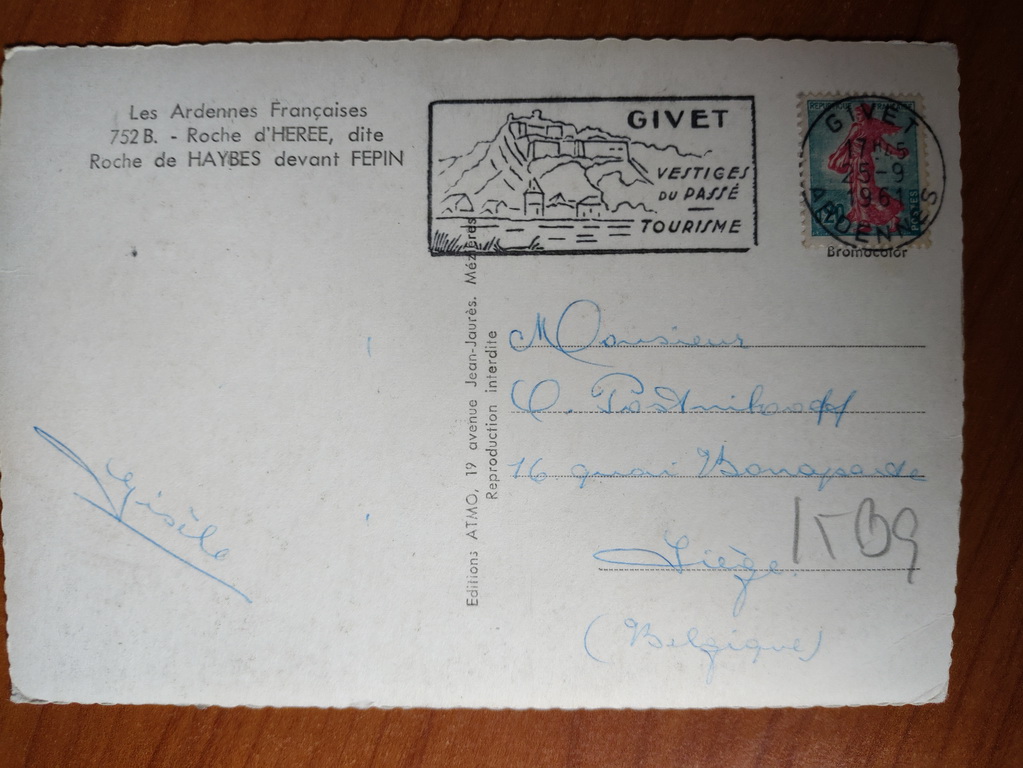 Les Ardennes Françaises
752 B. - Roche d'HEREE, dite
Roche de HAYBES devant FEPIN
GIVET
VESTIGES
DU PASSÉ
TOURISME
REPUBLIQUE FRANCAISE
POSTES
GIVET
17H15
25-9
1961
ARDENNES
Bromocolor
Editions ATMO, 19 avenue Jean-Jaurès. Mézières
Reproduction interdite
Monsieur
Postnikoff
16 quai Bonaparte
Liège
(Belgique)
Gisèle